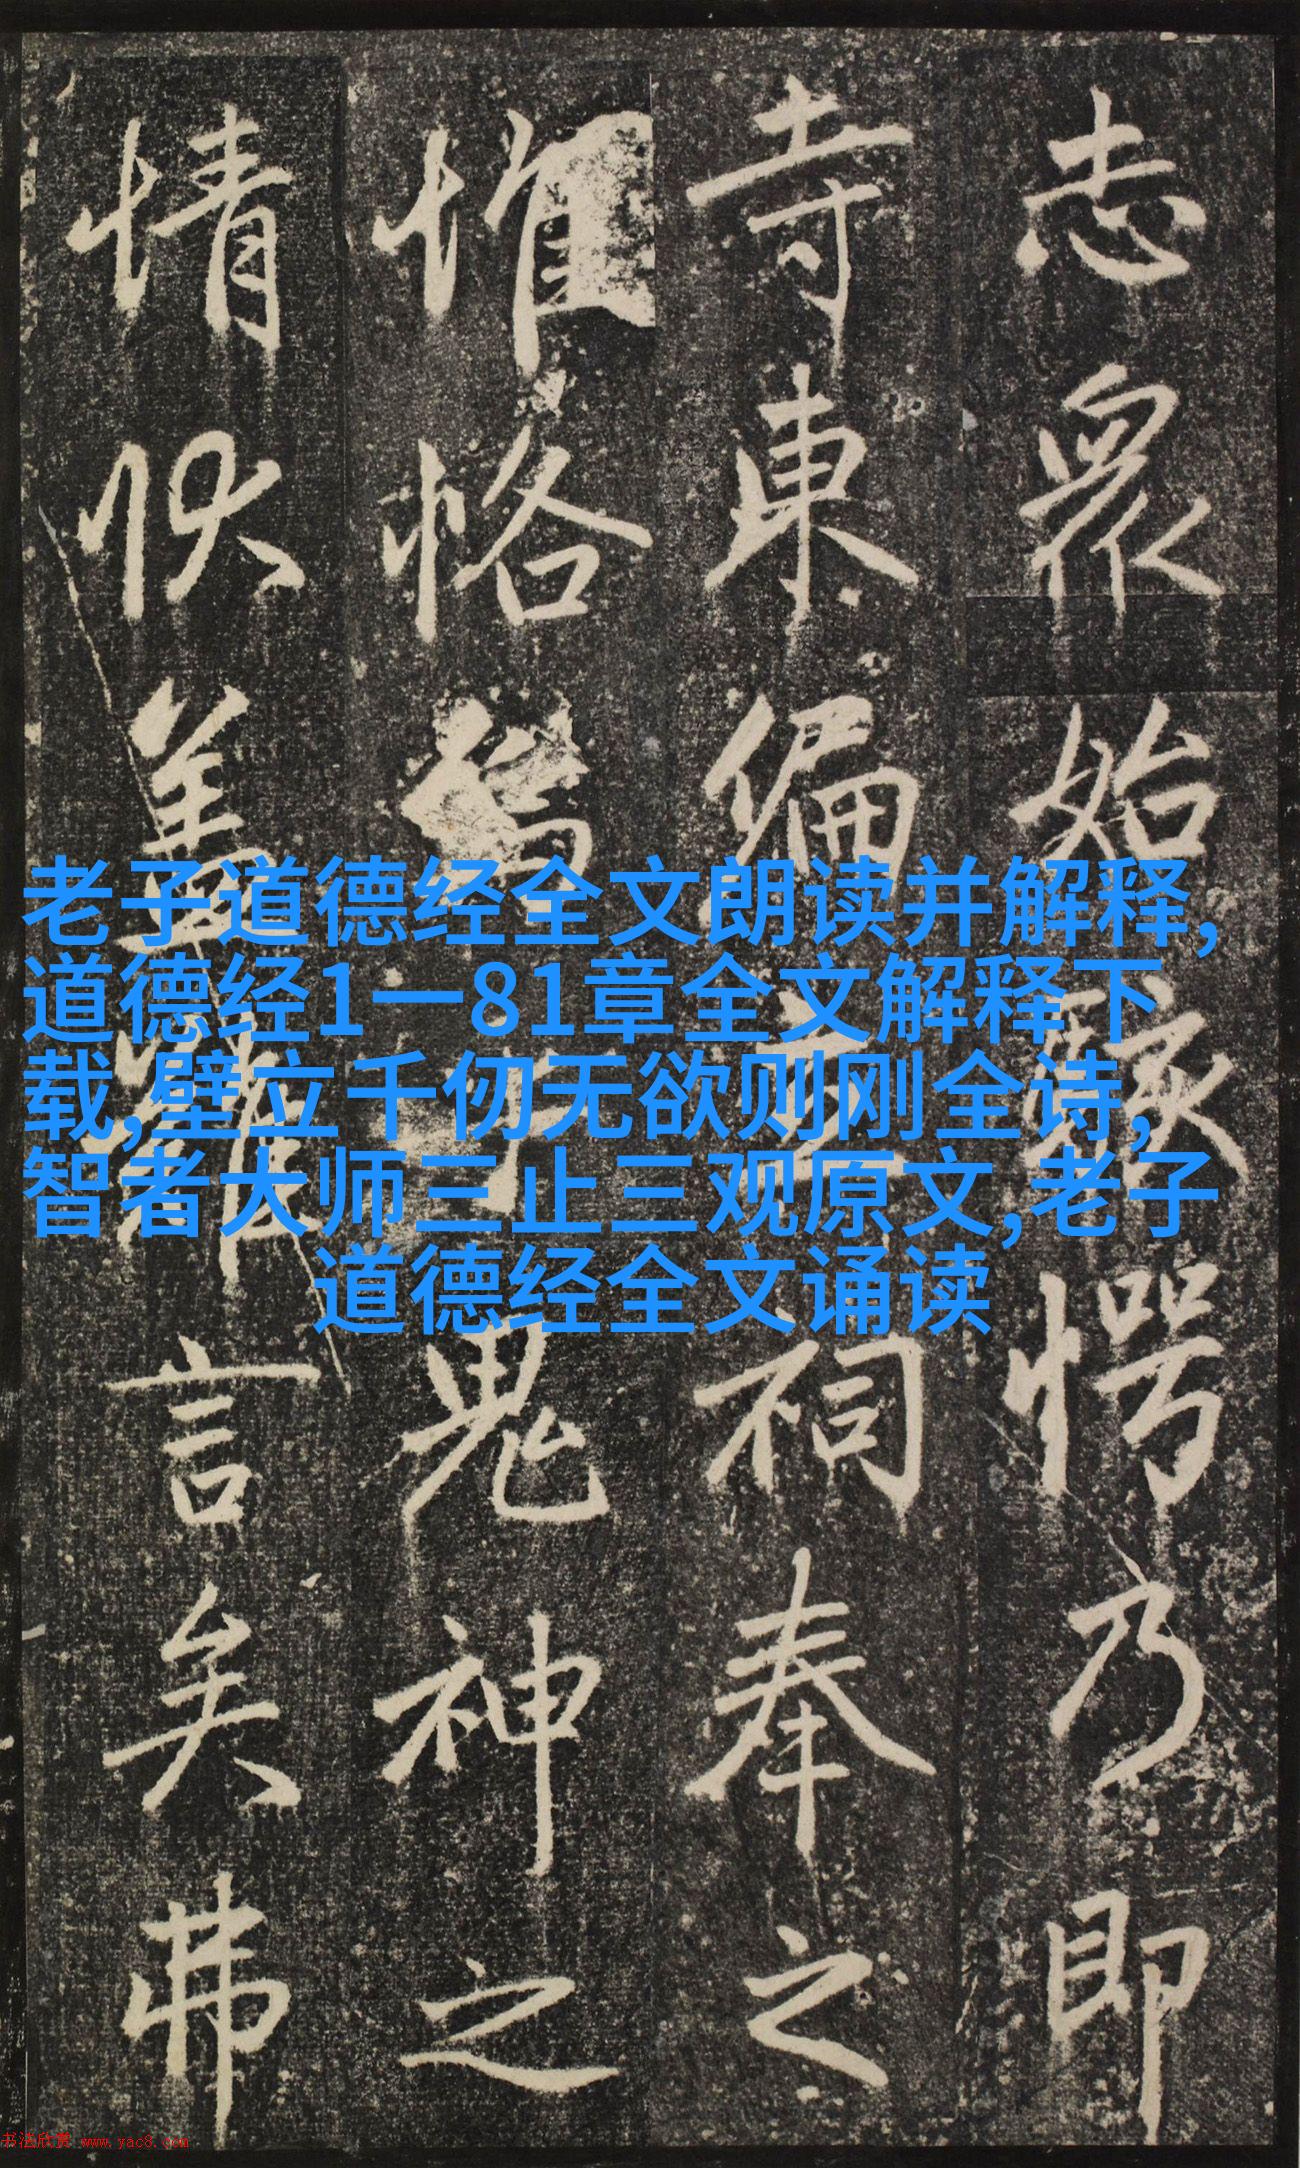 志眾始駭愕乃即
寺東偏立祠奉之
惟恪為鬼神之
情狀蓋難言矣弗
老子道德经全文朗读并解释,
道德经1一81章全文解释下
载,壁立千仞无欲则刚全诗,
智者大师三止三观原文,老子
道德经全文诵读
书法欣赏 www.yac8.com